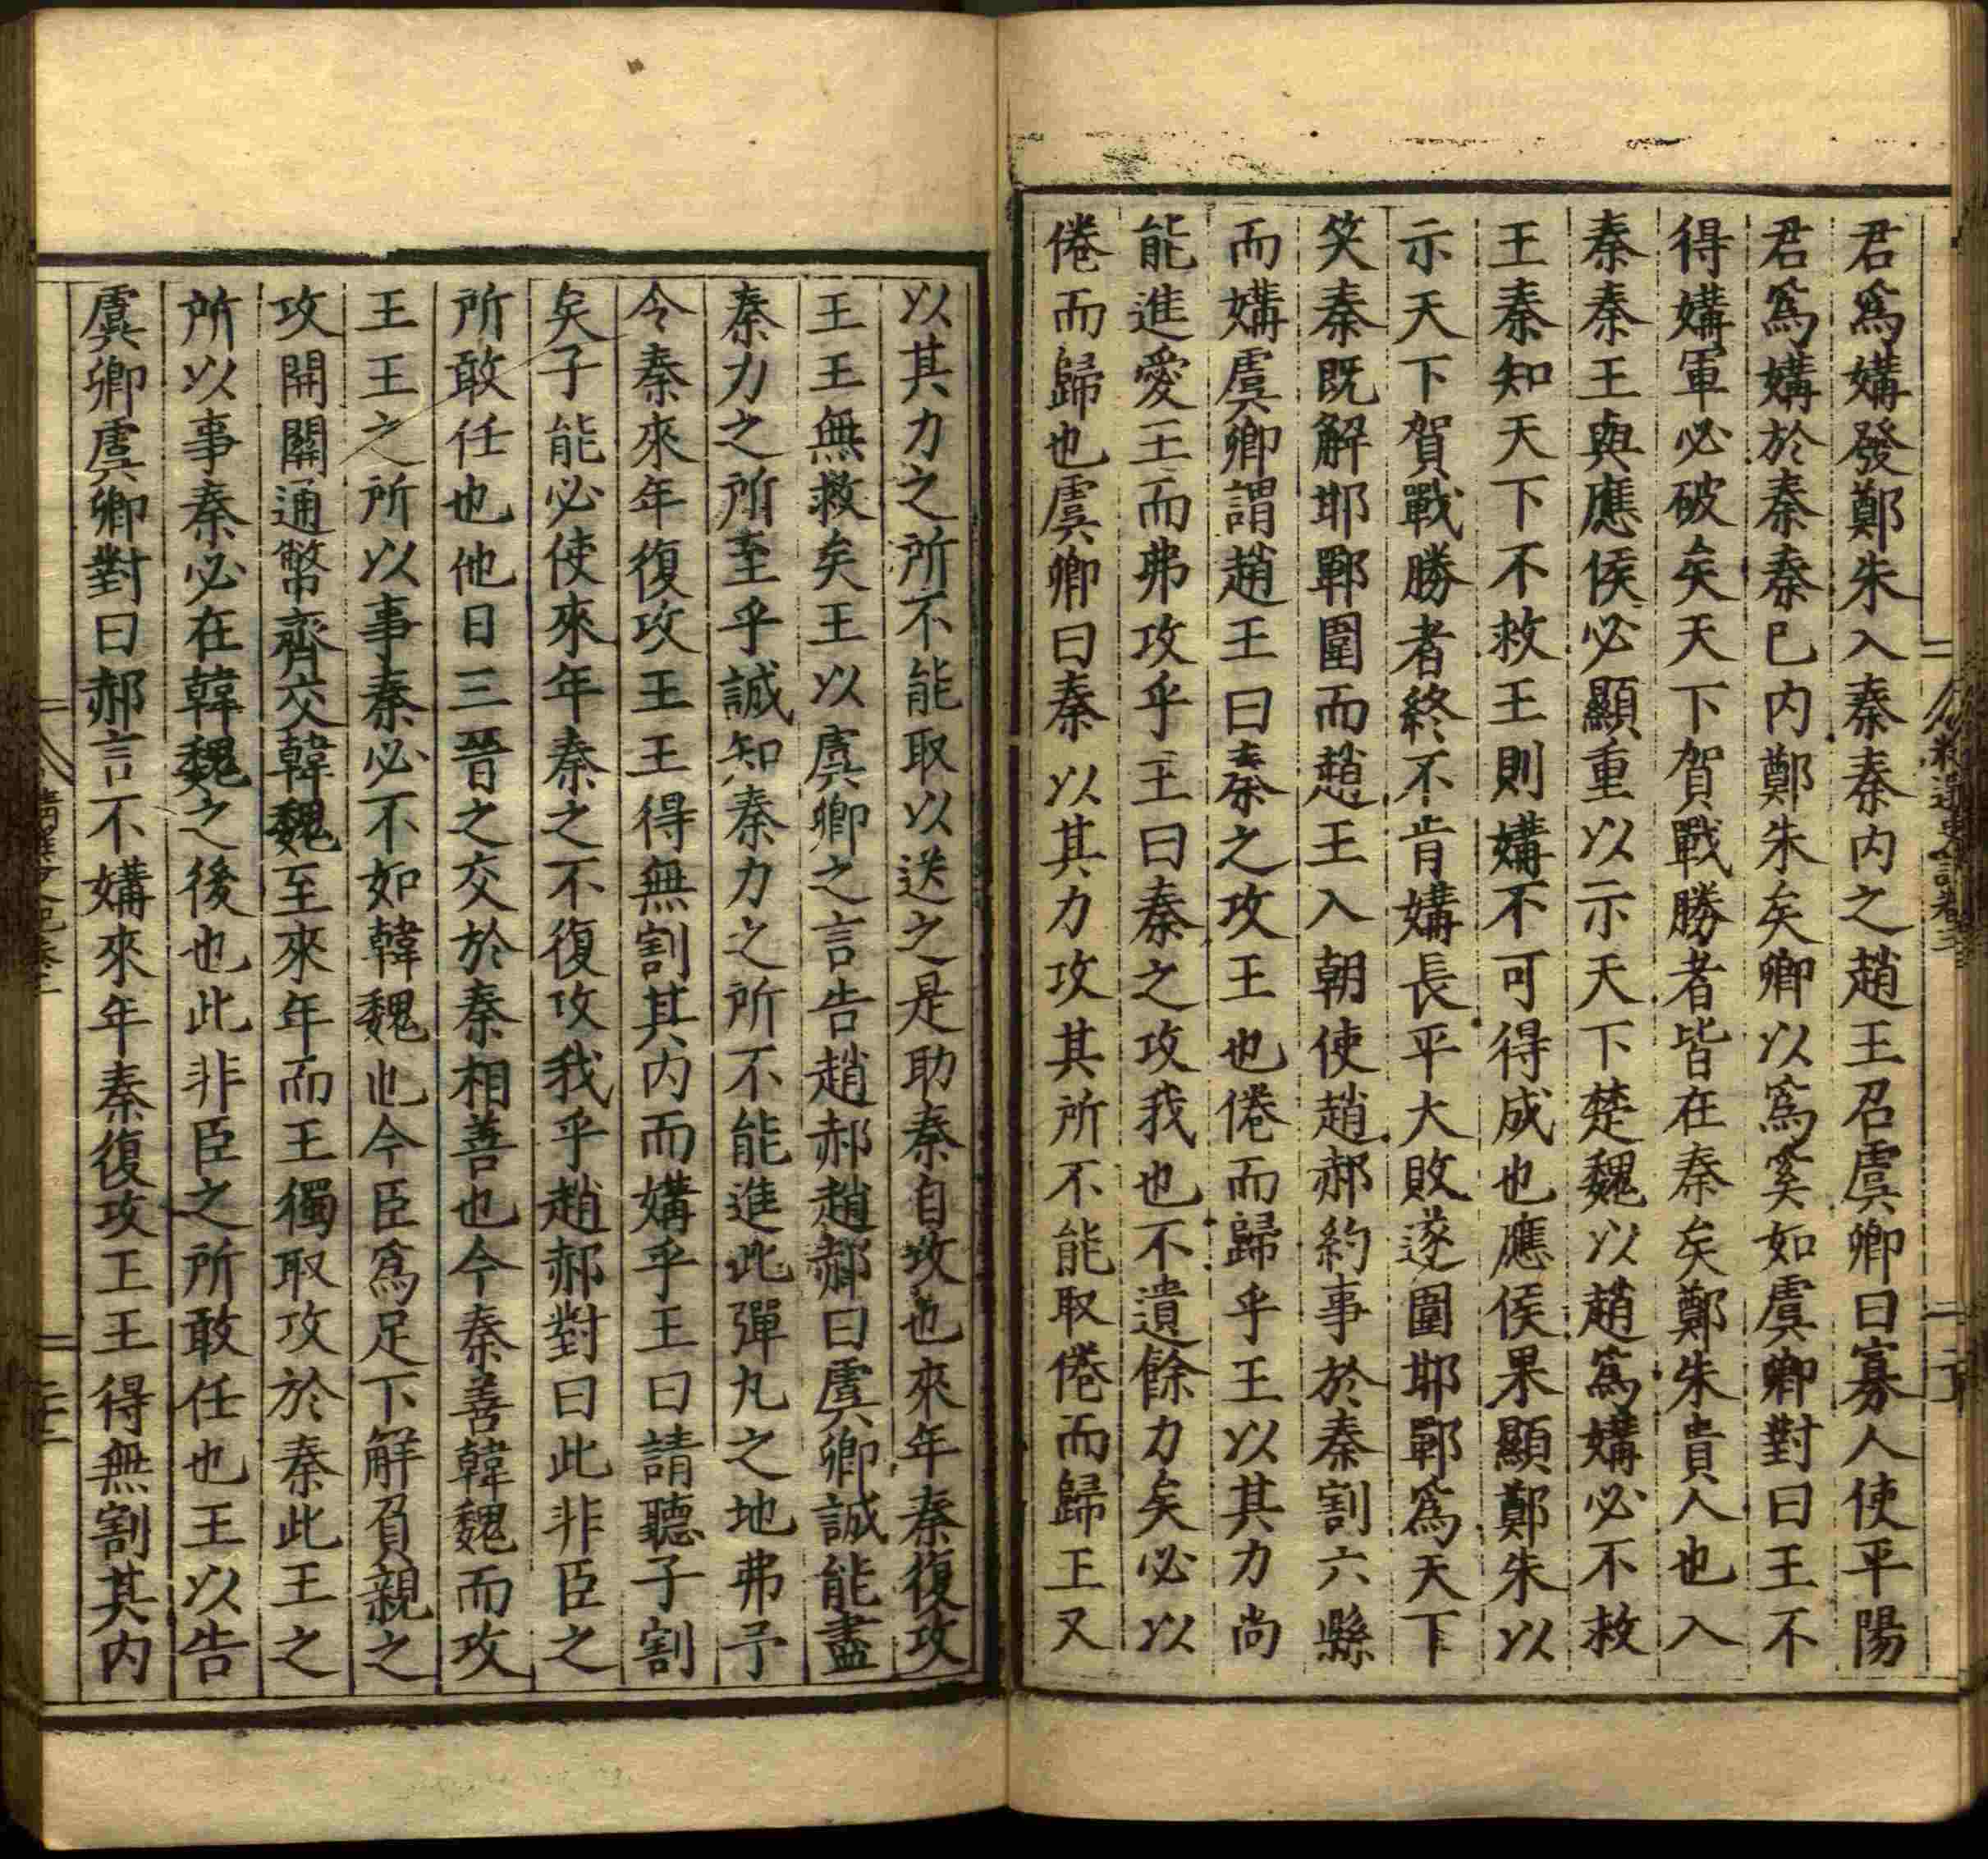 君爲媾發鄭朱入秦秦内之趙王召虞卿曰寡人使平陽
君爲媾於秦秦已内鄭朱矣卿以爲奚如虞卿對曰王不
得媾軍必破矣天下賀戰勝者皆在秦矣鄭朱貴人也入
秦秦王與應侯必顯重以示天下楚魏以趙爲媾必不救
王秦知天下不救王則媾不可得成也應侯果顯鄭朱以
示天下賀戰勝者終不肯媾長平大敗遂圍耶鄲爲天下
笑秦既解耶鄲圍而趙王入朝使趙郝約事於秦割六縣
而媾虞卿謂趙王曰秦之攻王也倦而歸乎王以其力尚
能進愛王而弗攻乎王曰秦之攻我也不遺餘力矣必以
倦而歸也虞卿曰秦以其力攻其所不能取倦而歸王又
以其力之所不能取以送之是助秦自攻也來年秦復攻
王王無救矣王以虞卿之言告趙郝趙郝曰虞卿誠能盡
秦力之所至乎誠知秦力之所不能進此彈丸之地弗予
令秦來年復攻王王得無割其内而媾乎王曰請聽子割
矣子能必使來年秦之不復攻我乎趙郝對曰此非臣之
所敢任也他日三晉之交於秦相善也今秦善韓魏而攻
王王之所以事秦必不如韓魏也今臣爲足下解負親之
攻開關通幣齊交韓魏至來年而王獨取攻於秦此王之
所以事秦必在韓魏之後也此非臣之所敢任也王以告
虞卿虞卿對曰郝言不媾來年秦復攻王王得無割其内